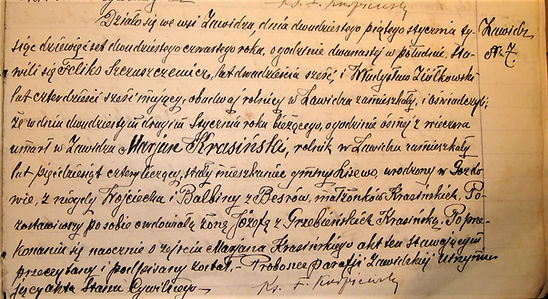 Ks. F. Kurpiewski
Działo się we wsi Zawidzu dnia dwudziestego piątego stycznia ty- Zawidz
siąc dziewięćset dwudziestego czwartego roku, o godzinie dwunastej w południe. Sta- № 7.
wili się Feliks Szczuszczewicz, lat dwadzieścia sześć, i Władysław Ziółkowski
lat czterdzieści sześć mający, obadwaj rolnicy w Zawidzu zamieszkały, i oświadczyli;
że w dniu dwudziestym drugim Stycznia roku bieżącego, o godzinie ósmej z wieczora
umarł w Zawidzu Marjan Krasiński, rolnik w Zawidzu zamieszkały
lat pięćdziesiąt cztery liczący, stały mieszkaniec gminy urodzony w Gozdo-
wie, z niegdy Wojciecha i Balbiny z Besrów, małżonków Krasińskich. Po-
zostawiwszy po sobie owdowiałą żonę Józefę z Grzebieńskich Krasińską. Po prze-
konaniu się naocznie o zejściu Maryana Krasińskiego akt ten stawającym
przeczytany i podpisany został. - Proboszcz Parafji Zawidzkiej Utrzymu-
jący akta Stanu Cywilnego. Ks. F. Kurpiewski